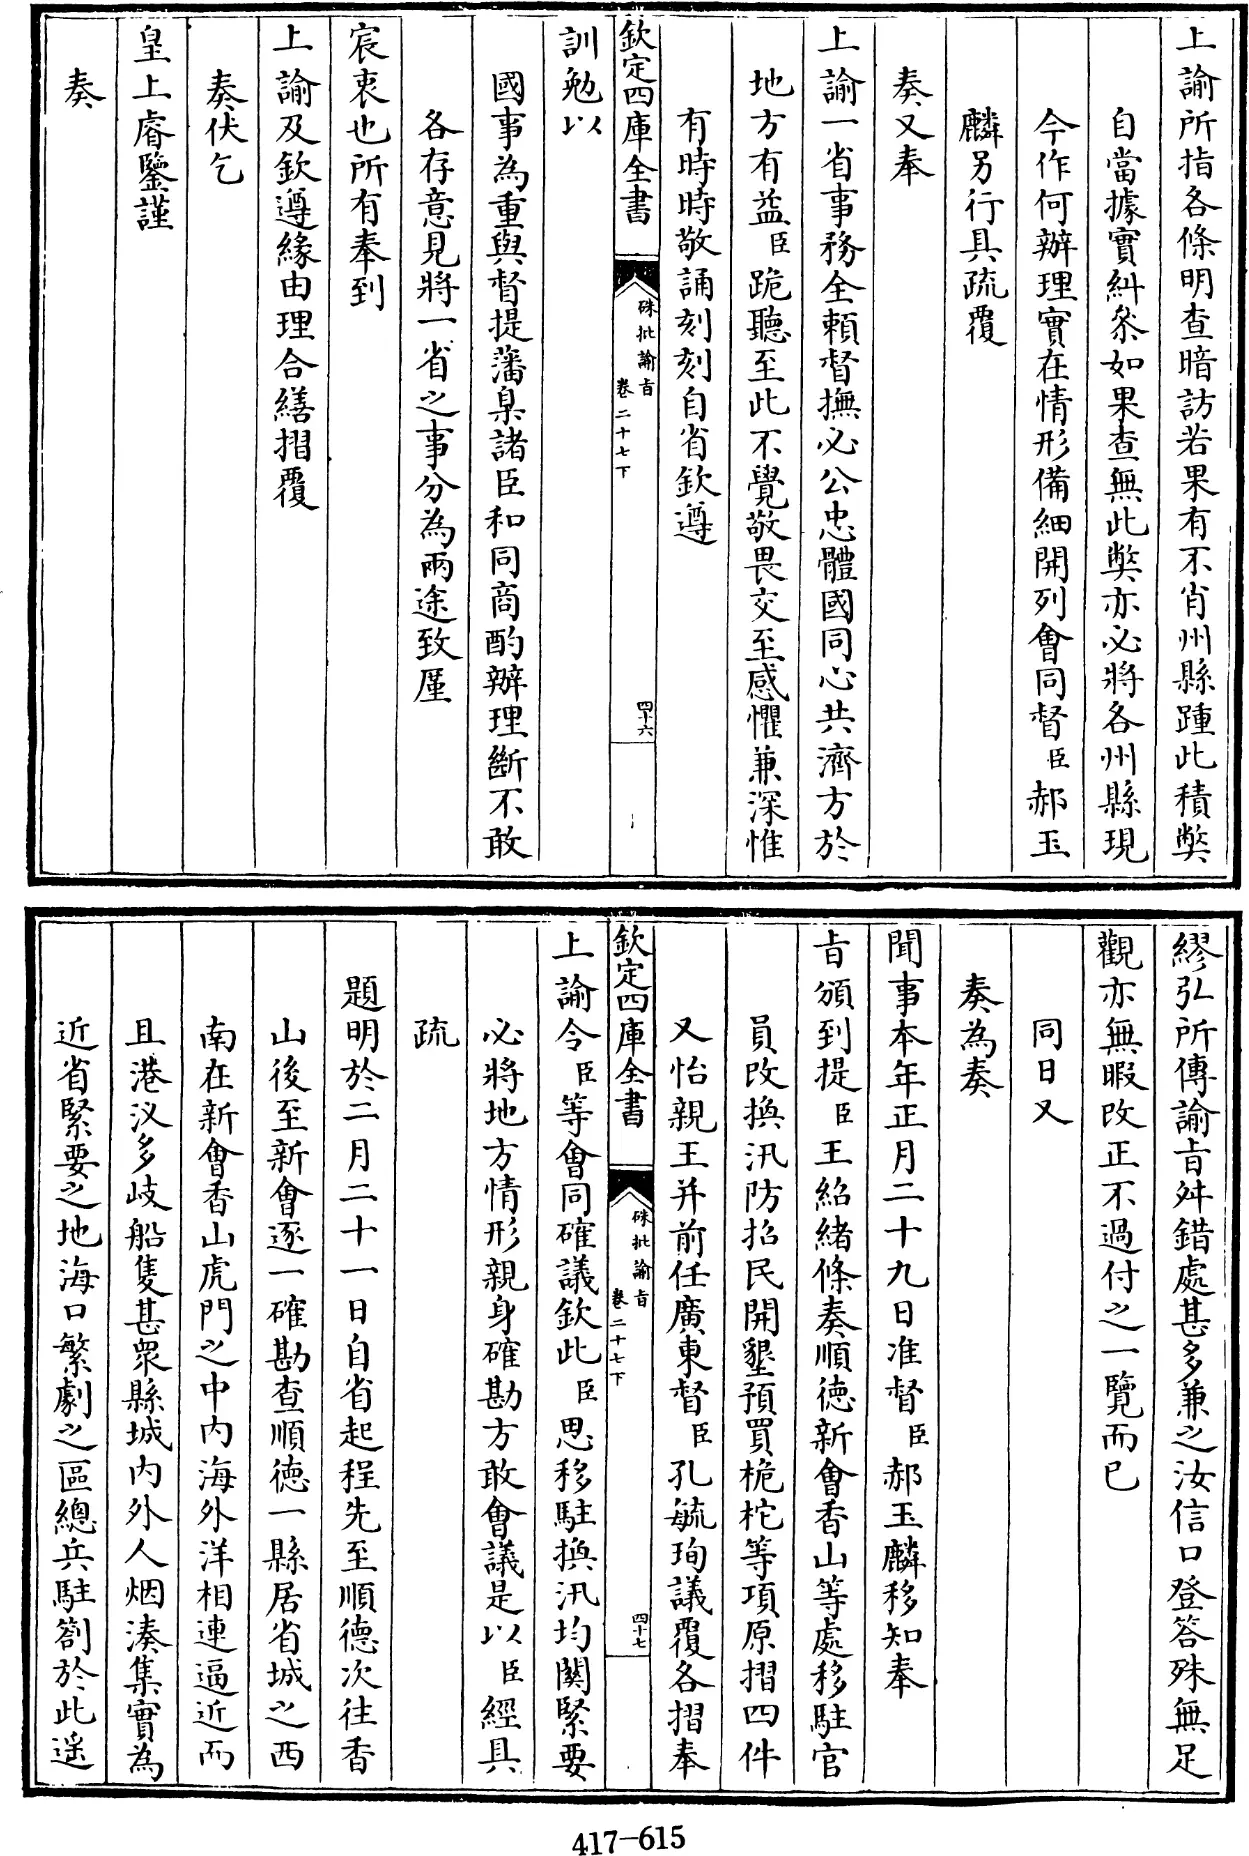 上諭所指各條明查暗訪若果有不肖州縣踵此積弊
自當據實糾叅如果查無此獘亦必將各州縣現
今作何辦理實在情形備細開列會同督臣郝玉
麟另行具疏覆
奏又奉
上諭一省事務全賴督撫必公忠體國同心共濟方於
地方有益臣跪聽至此不覺敬畏交至感懼兼深惟
有時時敬誦刻刻自省欽遵
欽定四庫全書
硃批諭旨
卷二十七下
四十六
訓勉以
國事為重與督提藩臬諸臣和同商酌辦理斷不敢
各存意見將一省之事分為兩途致廑
宸衷也所有奉到
上諭及欽遵緣由理合繕摺覆
奏伏乞
皇上睿鑒謹
奏
繆弘所傳諭旨舛錯處甚多兼之汝信口登答殊無足
觀亦無暇改正不過付之一覽而已
同日又
奏為奏
聞事本年正月二十九日准督臣郝玉麟移知奉
旨頒到提臣王紹緒條奏順徳新會香山等處移駐官
員改換汛防招民開墾預買桅柁等項原摺四件
又怡親王并前任廣東督臣孔毓珣議覆各摺奉
欽定四庫全書
硃批諭旨
卷二十七下
四十七
上諭令臣等會同確議欽此臣思移駐換汛均關緊要
必將地方情形親身確勘方敢會議是以臣經具
疏
題明於二月二十一日自省起程先至順德次往香
山後至新會逐一確勘查順徳一縣居省城之西
南在新會香山虎門之中内海外洋相連逼近而
且港汊多岐船隻甚眾縣城内外人烟湊集實為
近省緊要之地海口繁劇之區總兵駐劄於此遥
417-615